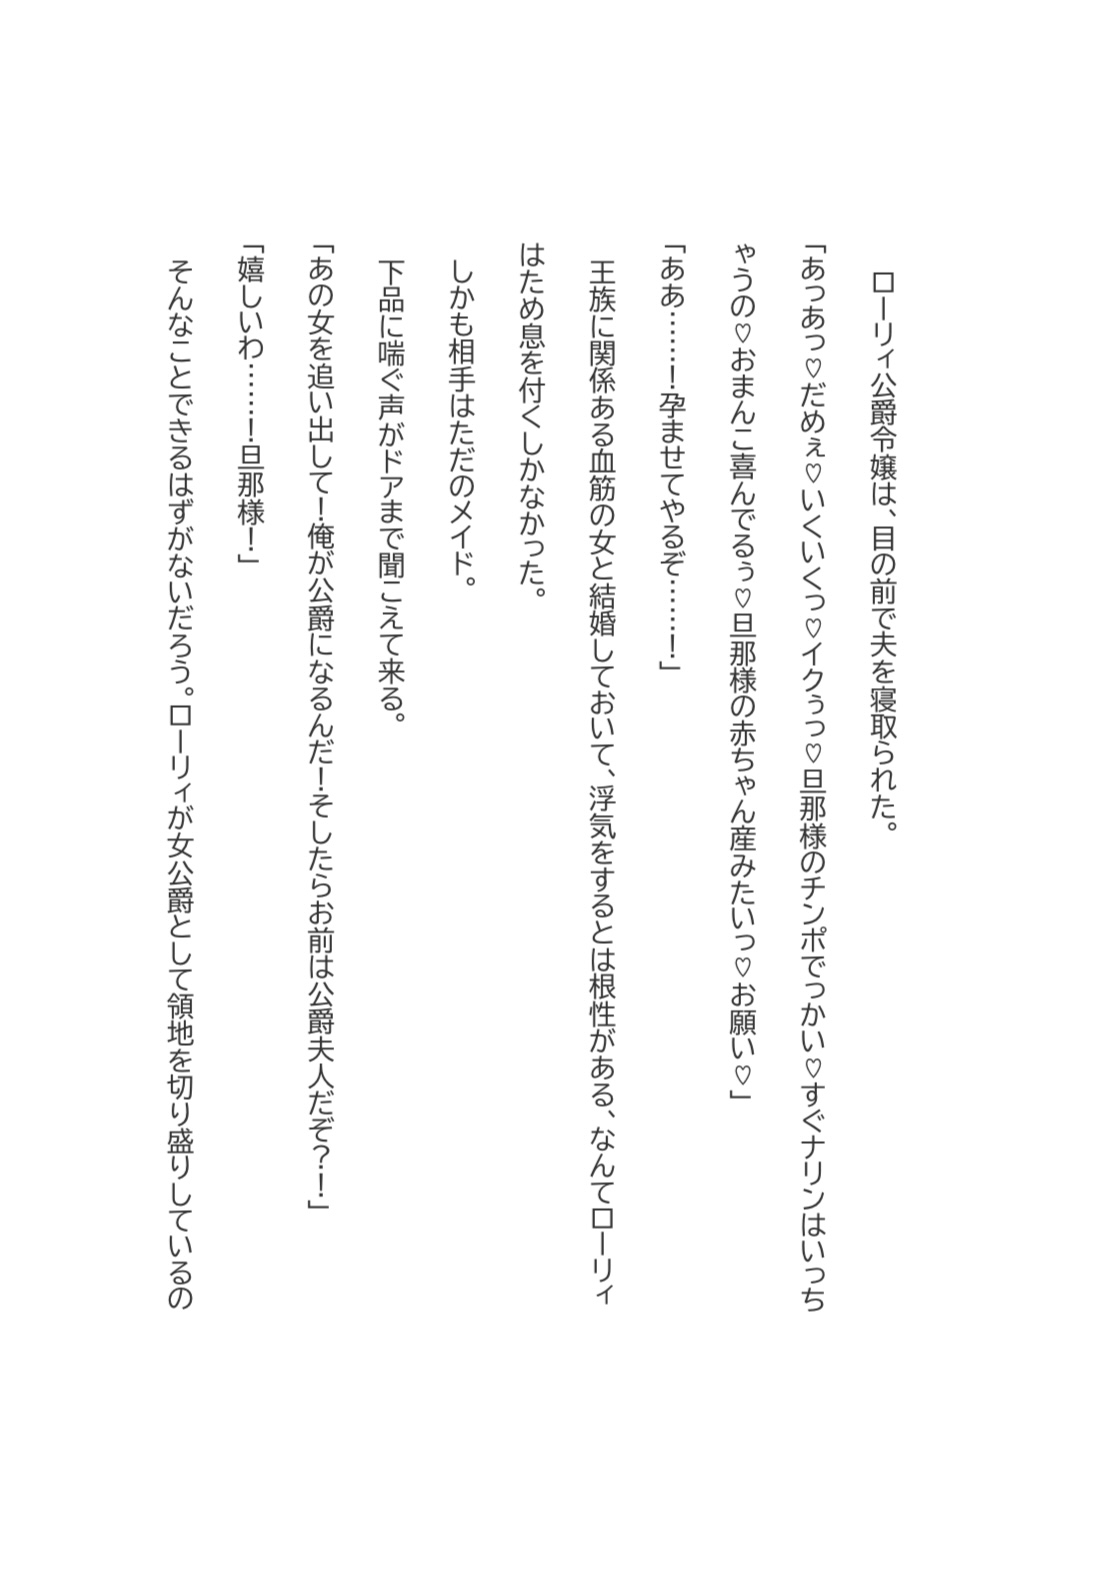 ローリィ公爵令嬢は、目の前で夫を寝取られた。
「あっあっ♡だめぇ♡いくいくっ♡イクぅっ♡旦那様のチンポでっかい♡すぐナリンはいっち
ゃうの♡おまんこ喜んでるぅ♡旦那様の赤ちゃん産みたいっ♡お願い♡」
「ああ……！孕ませてやるぞ……！」
王族に関係ある血筋の女と結婚しておいて、浮気をするとは根性がある、なんてローリィ
はため息を付くしかなかった。
しかも相手はただのメイド。
下品に喘ぐ声がドアまで聞こえて来る。
「あの女を追い出して！俺が公爵になるんだ！そしたらお前は公爵夫人だぞ？！」
「嬉しいわ……！旦那様！」
そんなことできるはずがないだろう。ローリィが女公爵として領地を切り盛りしているの